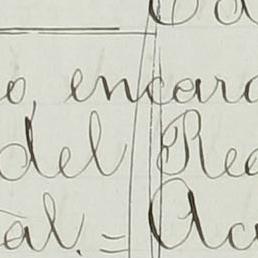 o, encarg
del Rec
al. = Ac